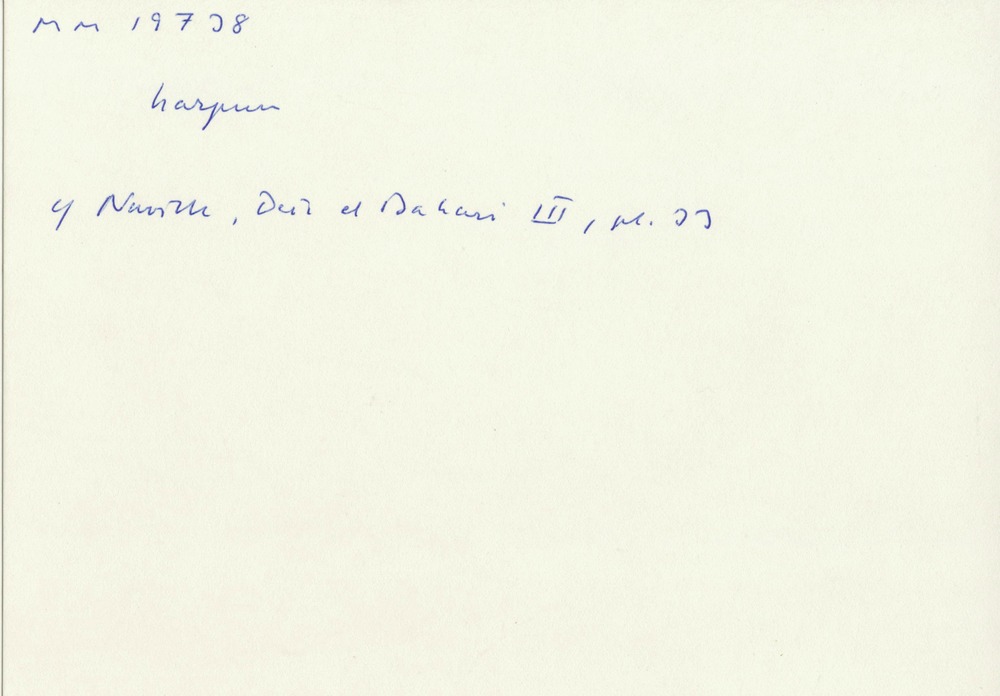 MM 19738
harpun
cf Naville, Deir el Bahari III, pl. 33